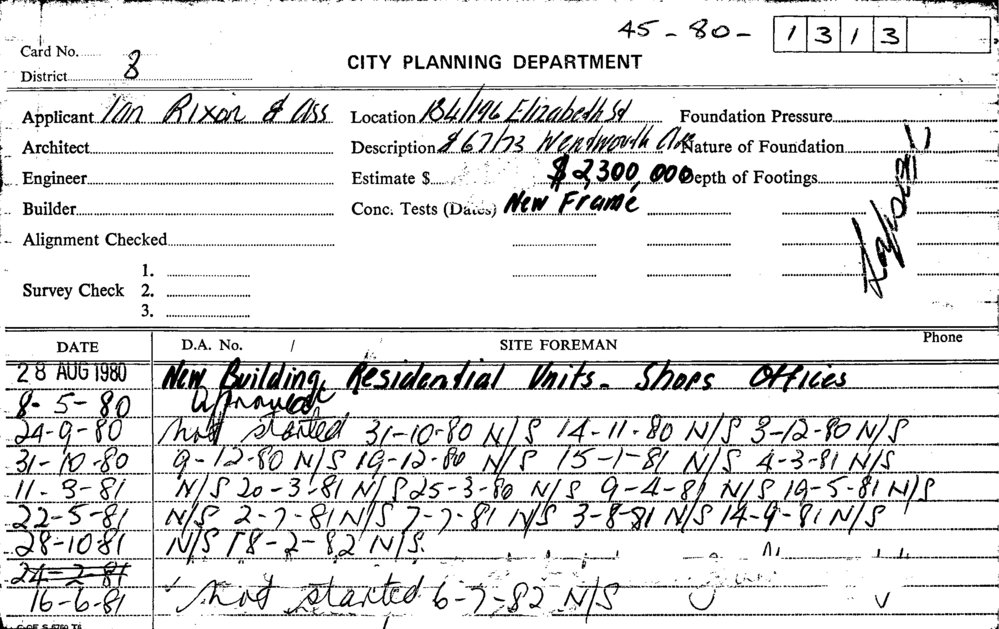 45 - 80 - 1 3 1 3
Card No.
District 8
CITY PLANNING DEPARTMENT
Applicant Ian Rixon & Ass Location 184/196 Elizabeth St Foundation Pressure
Architect Description & 67/73 Wentworth Ave Nature of Foundation
Engineer Estimate $ $2,300,000 Depth of Footings
Builder Conc. Tests (Dates) New Frame
Alignment Checked
1.
Survey Check 2.
3.
DATE D.A. No. / SITE FOREMAN Phone
28 AUG 1980 New Building, Residential Units - Shops Offices
8-5-80 Approved
24-9-80 not started 31-10-80 N/S 14-11-80 N/S 3-12-80 N/S
31-10-80 9-12-80 N/S 19-12-80 N/S 15-1-81 N/S 4-3-81 N/S
11-3-81 N/S 20-3-81 N/S 25-3-80 N/S 9-4-81 N/S 19-5-81 N/S
22-5-81 N/S 2-7-81 N/S 7-7-81 N/S 3-8-81 N/S 14-9-81 N/S
28-10-81 N/S 18-2-82 N/S.
24-2-81
16-6-81 not started 6-7-82 N/S